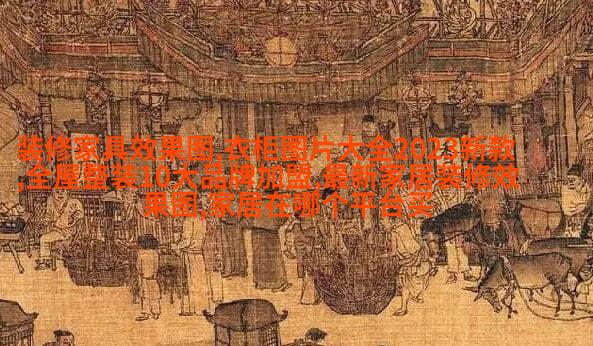 装修家具效果图,衣柜图片大全2023新款
,全屋整装10大品牌加盟,最新家居装修效
果图,家居在哪个平台买